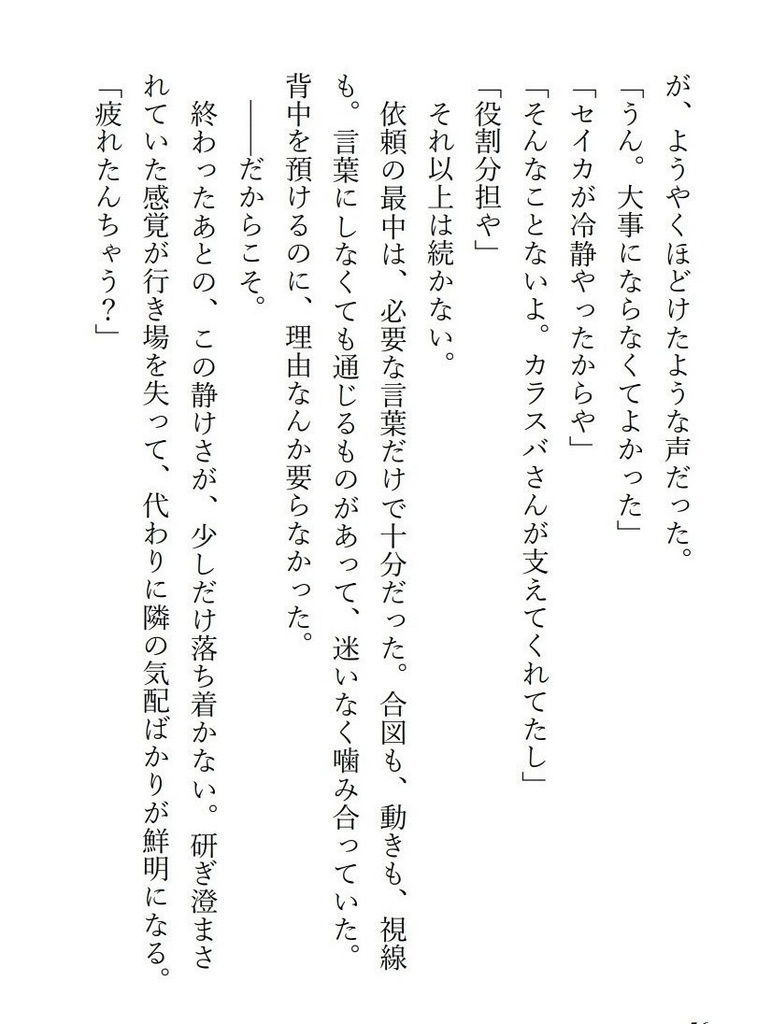 が、ようやくほどけたような声だった。
「うん。大事にならなくてよかった」
「セイカが冷静やったからや」
「そんなことないよ。カラスバさんが支えてくれてたし」
「役割分担や」
それ以上は続かない。
依頼の最中は、必要な言葉だけで十分だった。合図も、動きも、視線
も。言葉にしなくても通じるものがあって、迷いなく噛み合っていた。
背中を預けるのに、理由なんか要らなかった。
――だからこそ。
終わったあとの、この静けさが、少しだけ落ち着かない。研ぎ澄まさ
れていた感覚が行き場を失って、代わりに隣の気配ばかりが鮮明になる。
「疲れたんちゃう？」